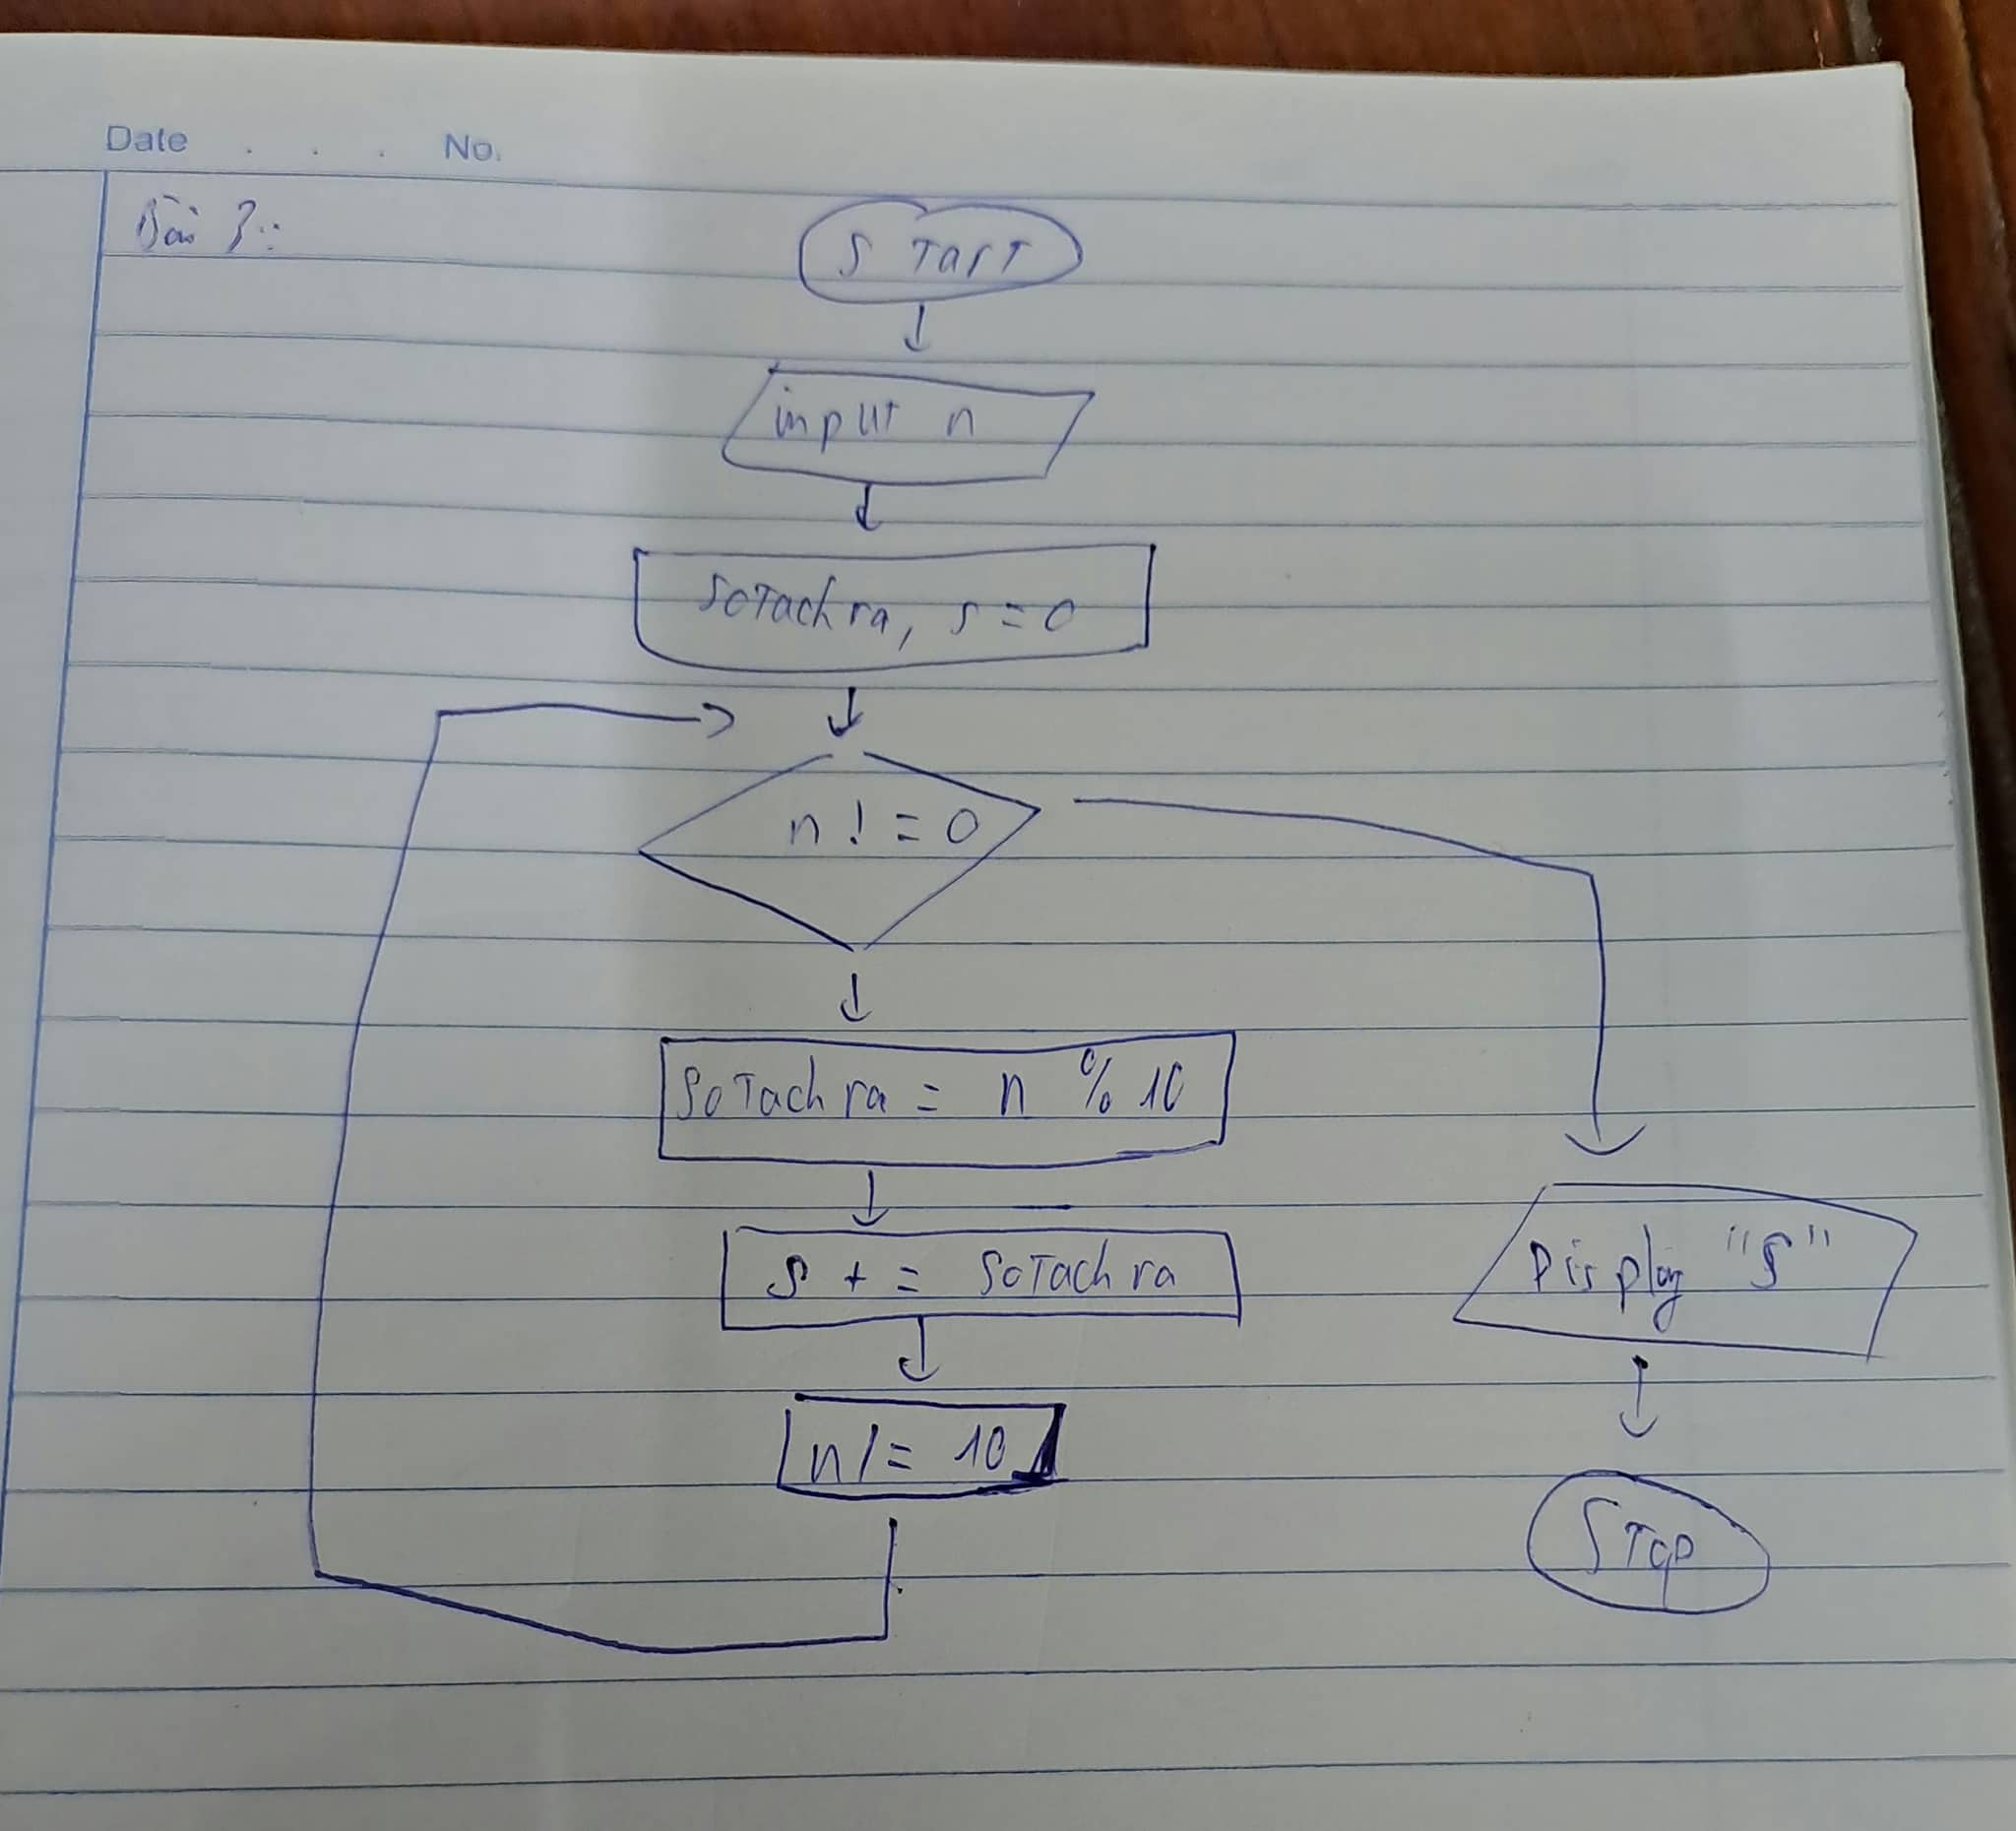 Date . . . No.
Bài 3:
START
input n
SoTachra, s = 0
n != 0
SoTachra = n % 10
S += SoTachra
n /= 10
Display "S"
STOP